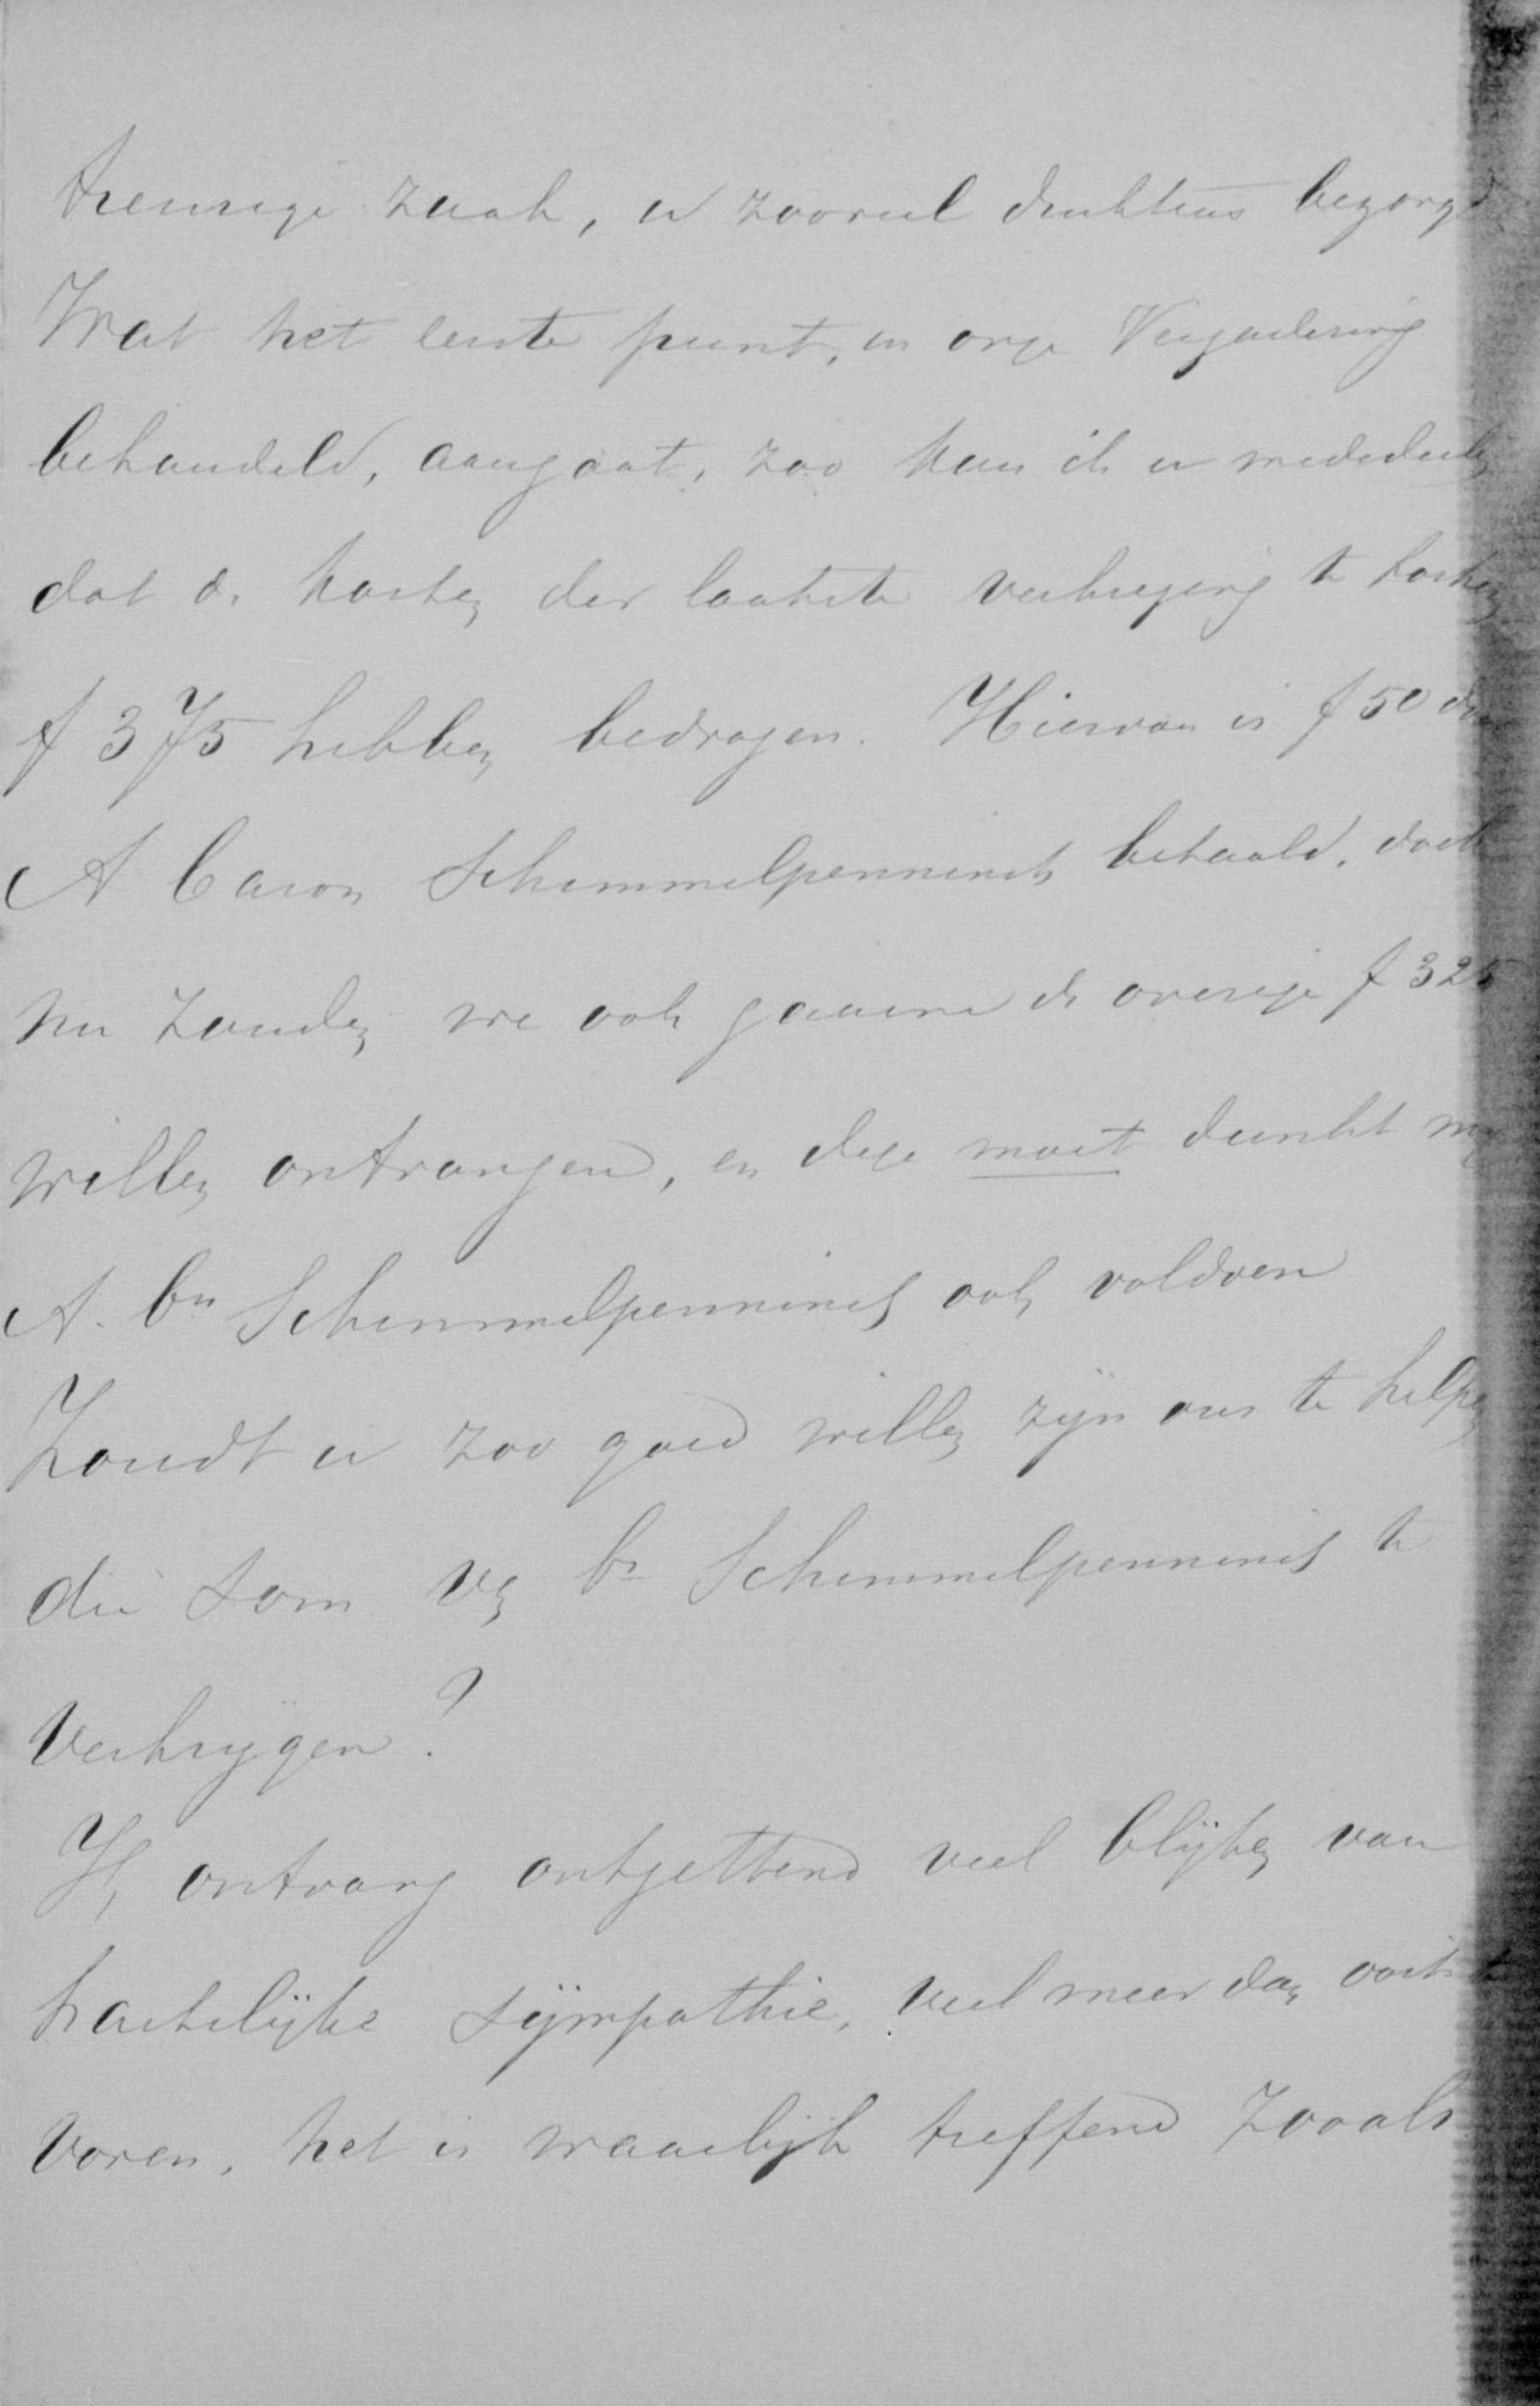 treurige zaak, u zooveel druktens bezorgd
Wat het eerste punt, in onze Vergadering
behandeld, aangaat, zoo kan ik u mededeelen
dat de kosten der laatste verkiezing te
f 375 hebben bedragen. Hiervan is f 50 door
A baron Schimmelpenninck betaald, doch
nu zouden we ook gaarne de overige f 325
willen ontvangen, en deze moet dunkt mij
A. bn Schimmelpenninck ook voldoen
Zoudt u zoo goed willen zijn ons te helpen
die som van bn Schimmelpenninck te
verkrijgen?
Ik ontvang ontzettend veel blijken van
hartelijke sympathie, veel meer dan ooit te
voren, het is waarlijk treffend zooals